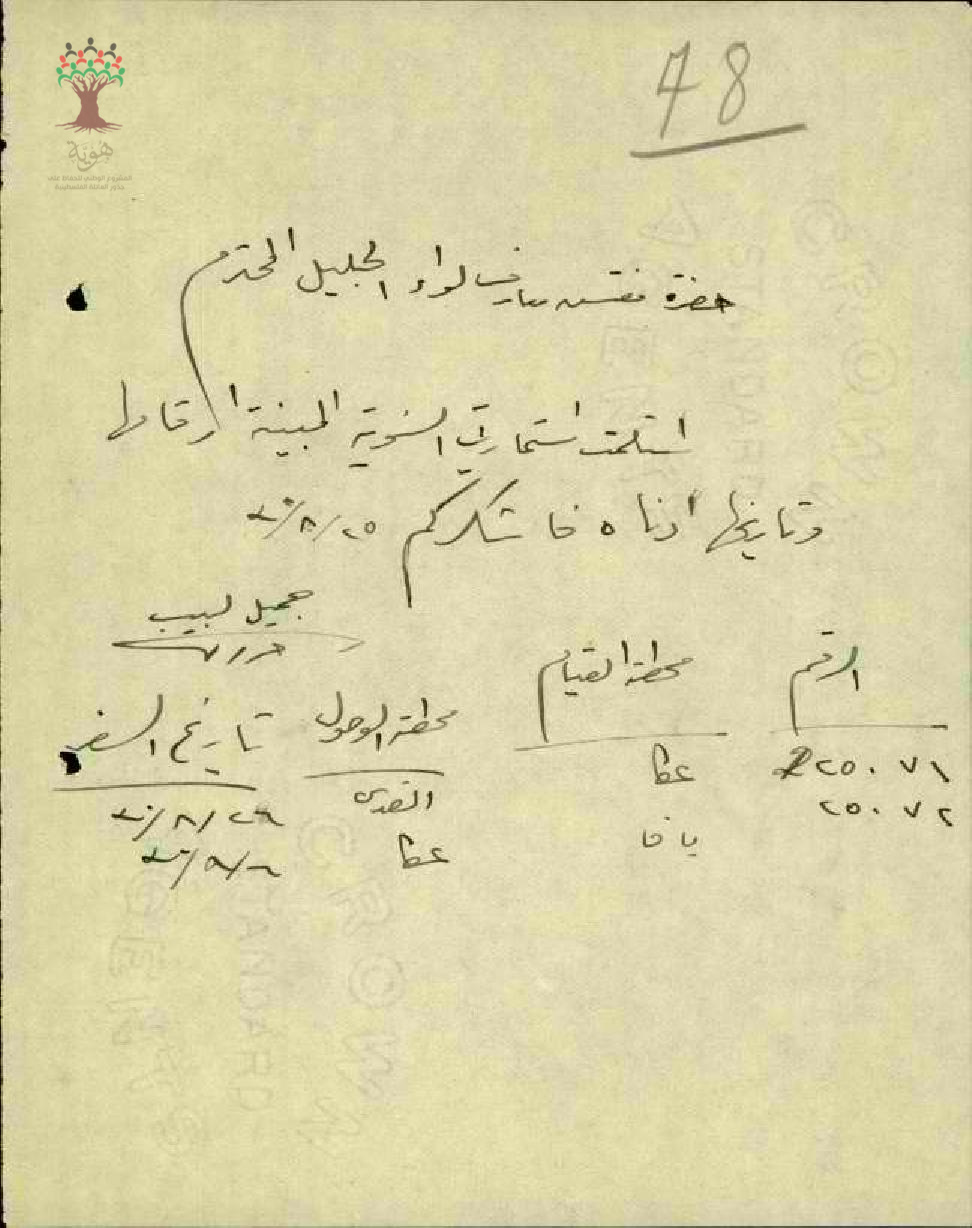 48
هوية
المشروع الوطني للحفاظ على
جذور العائلة الفلسطينية
حضرة مفتش معارف لواء الجليل المحترم
استلمت استمارتي السنوية المبينة ارقامها
وتاريخها ادناه فاشكركم ٢٥/٨/٤٠
جميل لبيب
الرقم محطة القيام محطة الوصول تاريخ السفر
٢٥٠٧١ عكا القدس ٢٦/٨/٤٠
٢٥٠٧٢ يافا عكا